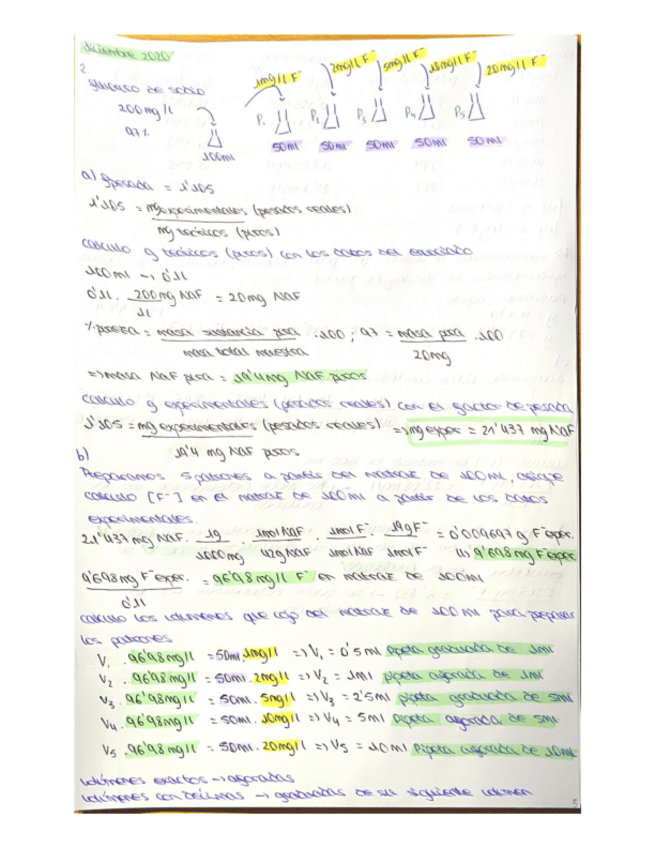 diciembre 2020
2.
1mg/l F⁻ 2mg/l F⁻ 5mg/l F⁻ 10mg/l F⁻ 20mg/l F⁻
fluoruro de sodio
200mg/l
97%
100ml
P₁ P₂ P₃ P₄ P₅
50ml 50ml 50ml 50ml 50ml
a) fpesada = 1'105
1'105 = mg experimentales (pesados reales)
mg teóricos (puros)
calculo g teóricos (puros) con los datos del enunciado
100ml → 0'1l
0'1l · 200mg NaF / 1l = 20mg NaF
% pureza = masa sustancia pura / masa total muestra · 100 ; 97 = masa pura / 20mg · 100
=> masa NaF pura = 19'4mg NaF puros
calculo g experimentales (pesados reales) con el factor de pesada
1'105 = mg experimentales (pesados reales) / 19'4 mg NaF puros => mg exper = 21'437 mg NaF
b)
Preparamos 5 patrones a partir del matraz de 100ml,
calculo [F⁻] en el matraz de 100ml a partir de los datos
experimentales.
21'437 mg NaF · 1g / 1000mg · 1mol NaF / 42g NaF · 1mol F⁻ / 1mol NaF · 19g F⁻ / 1mol F⁻ = 0'009697g F⁻ exper.
9'698mg F⁻ exper
9'698mg F⁻ exper. / 0'1l = 96'98mg/l F⁻ en matraz de 100ml
calculo los volúmenes que cojo del matraz de 100 ml para preparar
los patrones
V₁ · 96'98mg/l = 50ml · 1mg/l => V₁ = 0'5ml pipeta graduada de 1ml
V₂ · 96'98mg/l = 50ml · 2mg/l => V₂ = 1ml pipeta aforada de 1ml
V₃ · 96'98mg/l = 50ml · 5mg/l => V₃ = 2'5ml pipeta graduada de 5ml
V₄ · 96'98mg/l = 50ml · 10mg/l => V₄ = 5ml pipeta aforada de 5ml
V₅ · 96'98mg/l = 50ml · 20mg/l => V₅ = 10ml pipeta aforada de 10ml
volúmenes exactos → aforadas
volúmenes con décimas → graduadas de su siguiente volumen